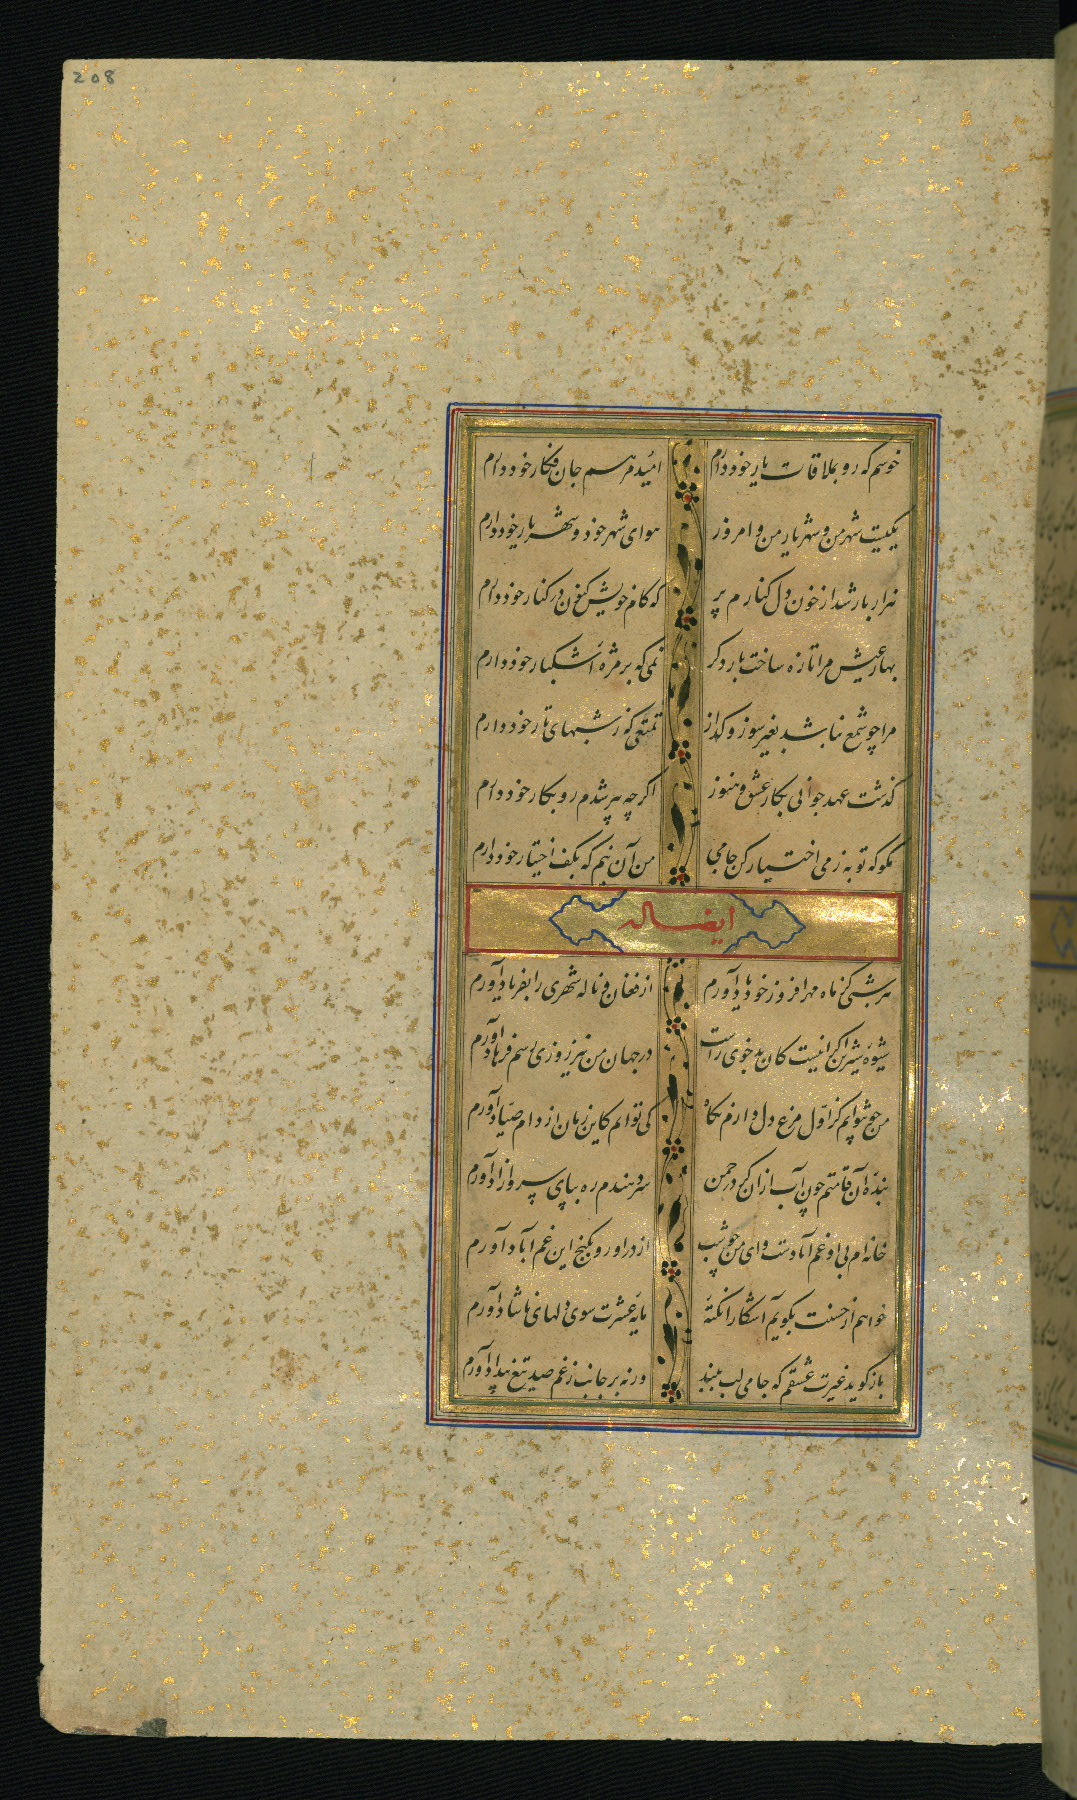 208
خوشم که رو بملاقات یار خود دارم امید مرهم جان فکار خود دارم
یکیست شهر من و شهریار من و امروز هوای شهر خود و شهریار خود دارم
هزار بار شد از خون دل کنارم پر که کام خویش کنون در کنار خود دارم
بهار عیش مرا تازه ساخت بار دکر نمی که بر مژه اشکبار خود دارم
مرا چو شمع نباشد بغیر سوز و کداز تمتعی که ز شبهای تار خود دارم
کذشت عهد جوانی بکار عشق و هنوز اکرچه پیر شدم رو بکار خود دارم
مکو که توبه ز می اختیار کن جامی من آن نیم که بکف اختیار خود دارم
ایضا له
هر شبی کز ماه مهرافروز خود یاد آورم از فغان و ناله شهری را بفریاد آورم
شیوه شیرین اکر اینست کان بدخوی راست در جهان من نیز روزی رسم فرهاد آورم
من چو نتوانم کز اول مرغ دل دارم نکاه کی توانم کاین زمان از دام صیاد آورم
بنده آن قامتم چون آب ازان کر در چمن سر دهندم ره بپای سرو آزاد آورم
خانه ام بی او غم آبادست وای من چو شب از در او رو بکنج این غم آباد آورم
خواهم از حسنت بکویم آشکارا نکته مایه عشرت سوی دلهای ناشاد آورم
باز کوید غیرت عشقم که جامی لب ببند ورنه بر جانت ز غم صد تیغ بیداد آورم